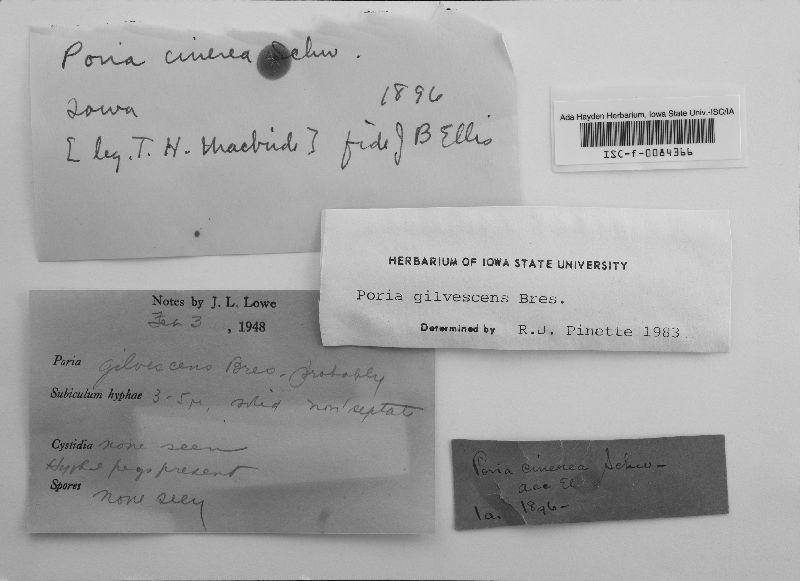 Poria cinerea Schw.
Iowa 1896
[leg. T. H. Macbride] fide J B Ellis
Ada Hayden Herbarium, Iowa State Univ.-ISC/IA
ISC-f-0084366
HERBARIUM OF IOWA STATE UNIVERSITY
Poria gilvescens Bres.
Determined by R.J. Pinette 1983
Notes by J. L. Lowe
Feb 3, 1948
Poria gilvescens Bres. probably
Subiculum hyphae 3-5µ, solid non septate
Cystidia none seen
Hyphal pegs present
Spores none seen
Poria cinerea Schw-
acc El
Ia. 1896-